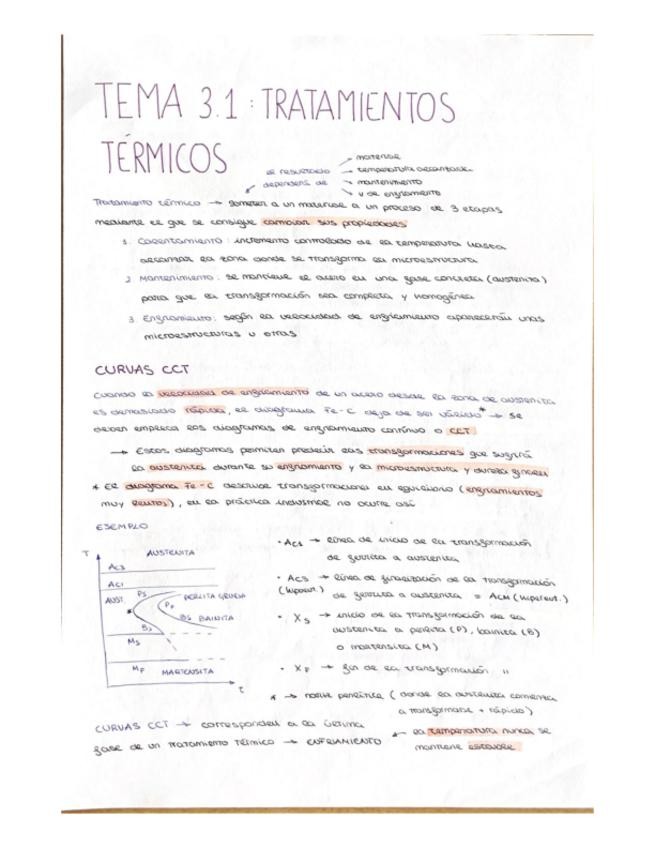 TEMA 3.1: TRATAMIENTOS
TÉRMICOS
el resultado
dependerá de
material
temperatura alcanzada
mantenimiento
v de enfriamiento
Tratamiento térmico → someter a un material a un proceso de 3 etapas
mediante el que se consigue cambiar sus propiedades
1. Calentamiento: incremento controlado de la temperatura hasta
alcanzar la zona donde se transforma la microestructura
2. Mantenimiento: se mantiene el acero en una fase concreta (austenita)
para que la transformación sea completa y homogénea
3. Enfriamiento: según la velocidad de enfriamiento aparecerán unas
microestructuras u otras
CURVAS CCT
Cuando la velocidad de enfriamiento de un acero desde la zona de austenita
es demasiado rápida, el diagrama Fe-C deja de ser válido* → se
deben emplear los diagramas de enfriamiento continuo o CCT
→ Estos diagramas permiten predecir las transformaciones que sufrirá
la austenita durante su enfriamiento y la microestructura y dureza finales
* El diagrama Fe-C describe transformaciones en equilibrio (enfriamientos
muy lentos), en la práctica industrial no ocurre así
EJEMPLO
T
AUSTENITA
AC3
AC1
AUST.
PS
PF
PERLITA GRUESA
BS BAINITA
BS
MS
MF
MARTENSITA
t
· AC1 → línea de inicio de la transformación
de ferrita a austenita
· AC3 → línea de finalización de la transformación
(hipoeut.) de ferrita a austenita = ACM (hipereut.)
· XS → inicio de la transformación de la
austenita a perlita (P), bainita (B)
o martensita (M)
· XF → fin de la transformación "
* → nariz perlítica (donde la austenita comienza
a transformarse + rápido)
CURVAS CCT → corresponden a la última
fase de un tratamiento térmico → ENFRIAMIENTO
← la temperatura nunca se
mantiene estable